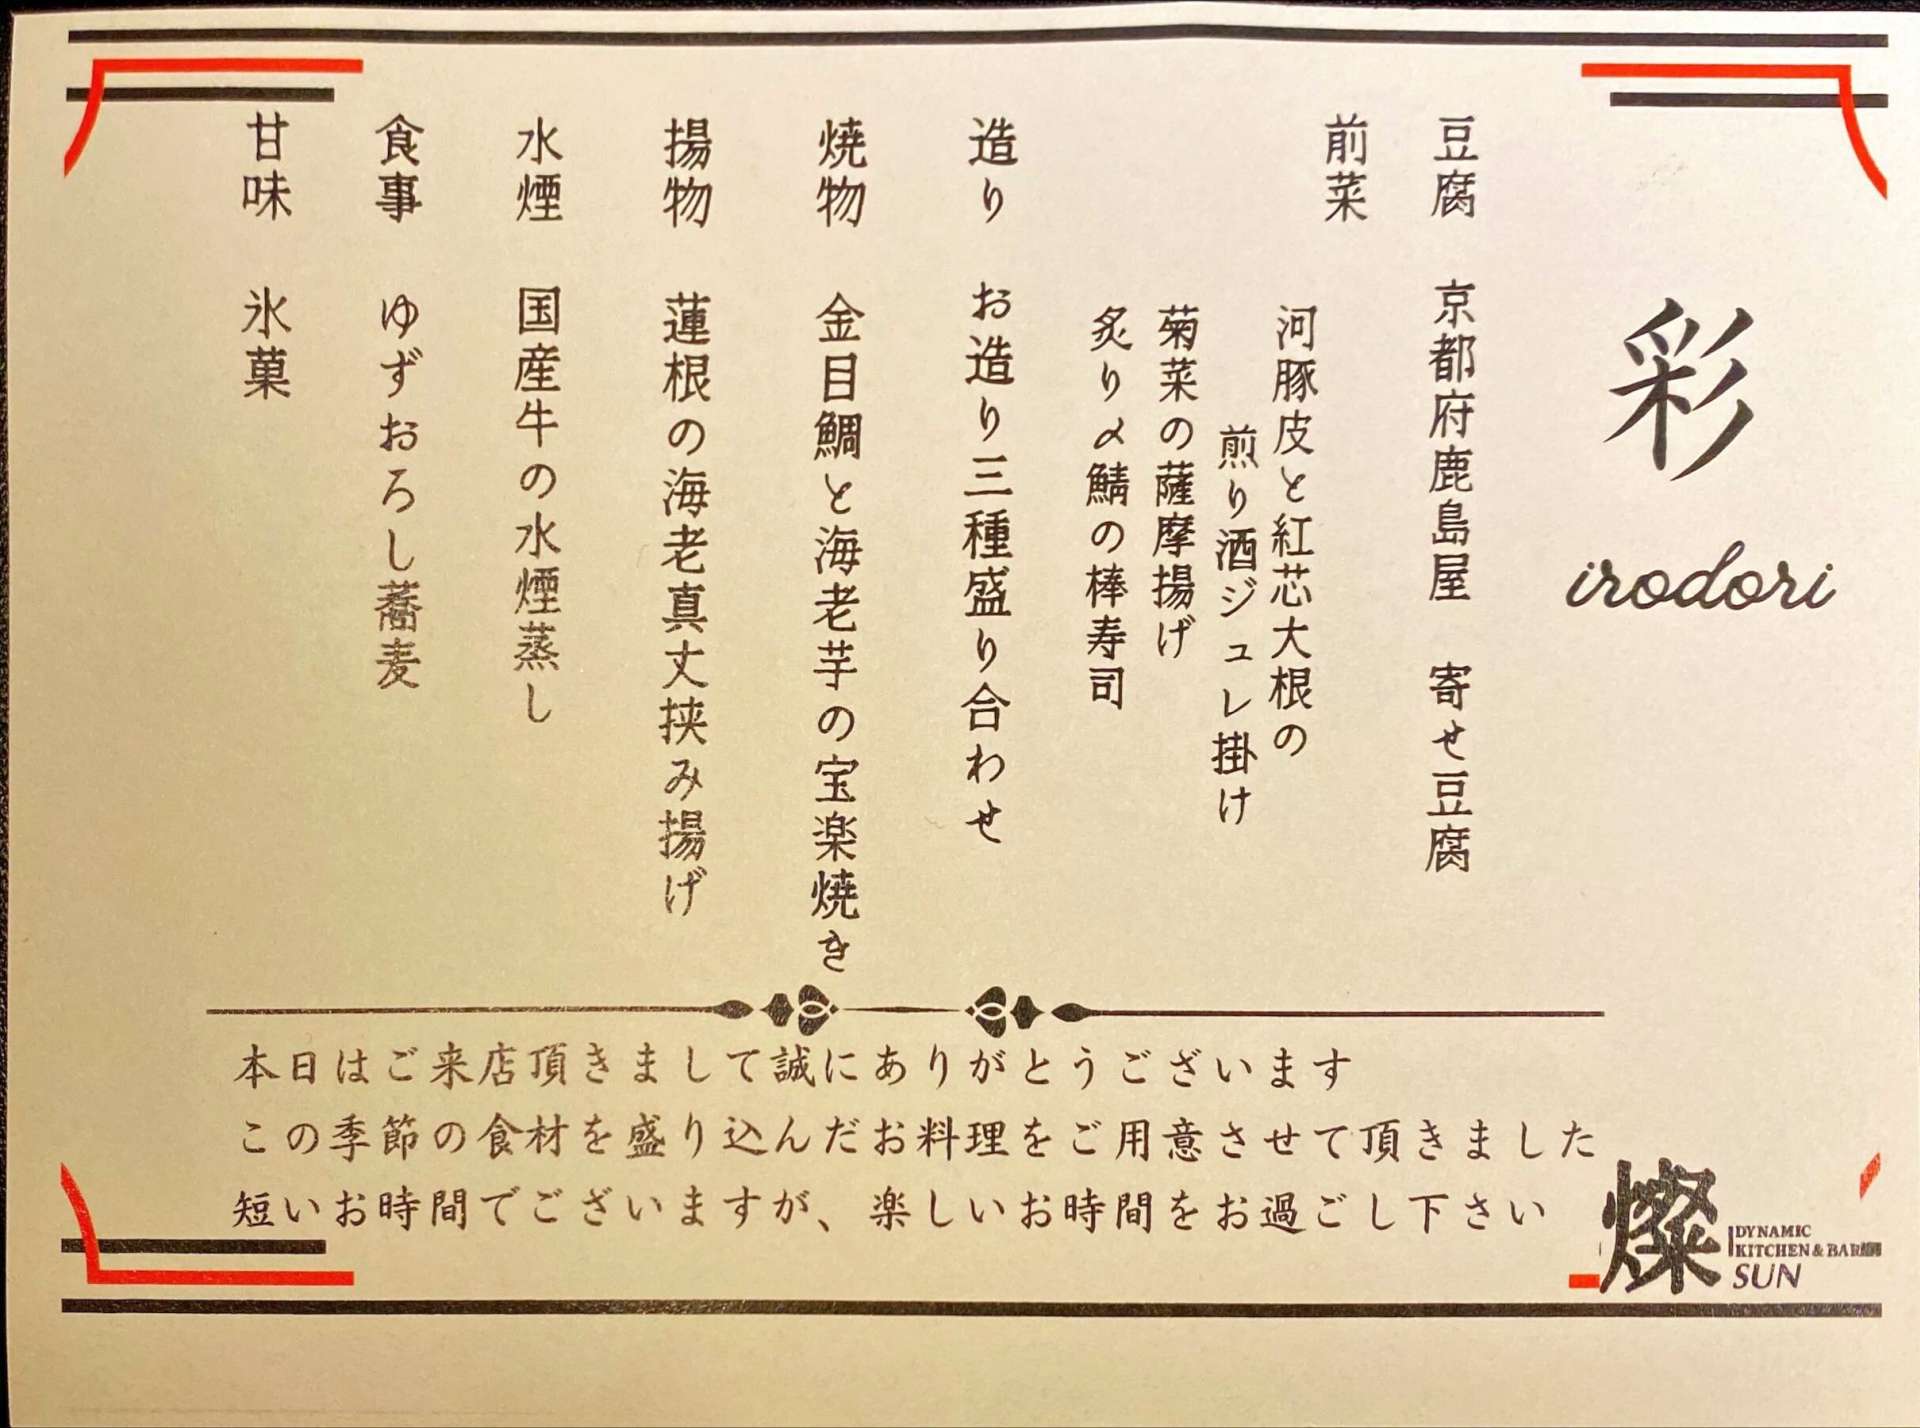 彩
irodori
豆腐　京都府鹿島屋　寄せ豆腐
前菜
河豚皮と紅芯大根の
煎り酒ジュレ掛け
菊菜の薩摩揚げ
炙り〆鯖の棒寿司
造り　お造り三種盛り合わせ
焼物　金目鯛と海老芋の宝楽焼き
揚物　蓮根の海老真丈挟み揚げ
水煙　国産牛の水煙蒸し
食事　ゆずおろし蕎麦
甘味　氷菓
本日はご来店頂きまして誠にありがとうございます
この季節の食材を盛り込んだお料理をご用意させて頂きました
短いお時間でございますが、楽しいお時間をお過ごし下さい
燦
DYNAMIC
KITCHEN & BAR
SUN